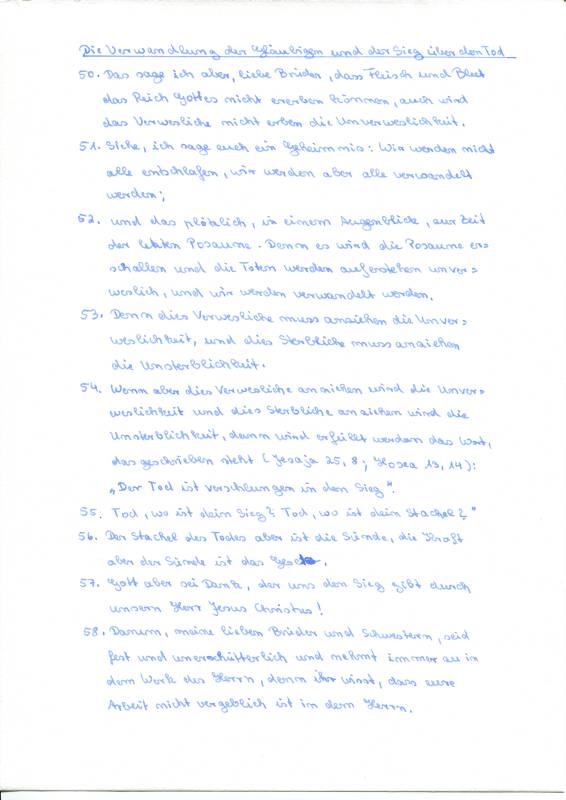 Die Verwandlung der Gläubigen und der Sieg über den Tod
50. Das sage ich aber, liebe Brüder, dass Fleisch und Blut
das Reich Gottes nicht ererben können, auch wird
das Verwesliche nicht erben die Unverweslichkeit.
51. Siehe, ich sage euch ein Geheimnis: Wir werden nicht
alle entschlafen, wir werden aber alle verwandelt
werden;
52. und das plötzlich, in einem Augenblick, zur Zeit
der letzten Posaune. Denn es wird die Posaune er=
schallen und die Toten werden auferstehen unver=
weslich, und wir werden verwandelt werden.
53. Denn dies Verwesliche muss anziehen die Unver=
weslichkeit, und dies Sterbliche muss anziehen
die Unsterblichkeit.
54. Wenn aber dies Verwesliche anziehen wird die Unver=
weslichkeit und dies Sterbliche anziehen wird die
Unsterblichkeit, dann wird erfüllt werden das Wort,
das geschrieben steht (Jesaja 25, 8; Hosea 13, 14):
„Der Tod ist verschlungen in den Sieg".
55. Tod, wo ist dein Sieg? Tod, wo ist dein Stachel?"
56. Der Stachel des Todes aber ist die Sünde, die Kraft
aber der Sünde ist das
57. Gott aber sei Dank, der uns den Sieg gibt durch
unsern Herr Jesus Christus!
58. Darum, meine lieben Brüder und Schwestern, seid
fest und unerschütterlich und nehmt immer zu in
dem Werk des Herrn, denn ihr wisst, dass eure
Arbeit nicht vergeblich ist in dem Herrn.